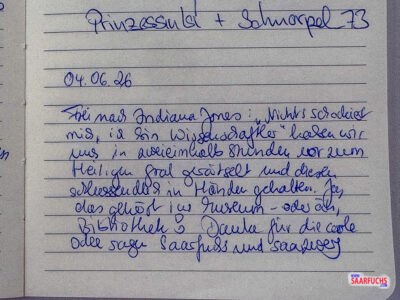 Prinzessin + Schnorpel 73
04.06.26
Frei nach Indiana Jones: „Nichts schockiert
mich, ich bin Wissenschaftler" haben wir
uns in zweieinhalb Stunden vor zum
Heiligen Gral gerätselt und diesen
schliessendlich in Händen gehalten. Ja,
das gehört ins Museum - oder ähm,
Bibliothek Danke für die coole
sagen Saarfuchs und saarzwerg
WWW.
SAARFUCHS
.COM